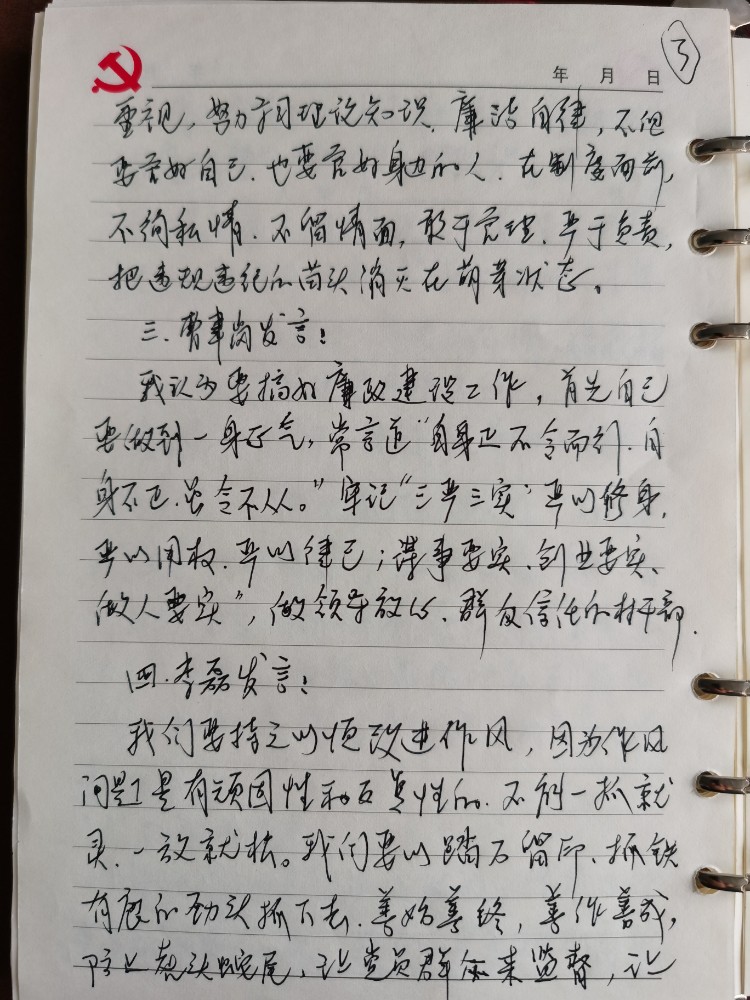 3
年 月 日
重视，努力学习理论知识，廉洁自律，不但
要管好自己、也要管好身边的人，在制度面前，
不徇私情、不留情面，敢于管理、严于负责，
把违规违纪的苗头消灭在萌芽状态。
三、曹聿岗发言：
我认为要搞好廉政建设工作，首先自己
要做到一身正气，常言道"自身正不令而行，自
身不正，虽令不从。"牢记"三严三实"严以修身，
严以用权、严以律己；谋事要实、创业要实、
做人要实"，做领导放心、群众信任的村干部.
四、李磊发言：
我们要持之以恒改进作风，因为作风
问题是有顽固性和反复性的，不能一抓就
灵、一放就松。我们要以踏石留印、抓铁
有痕的劲头抓下去，善始善终，善作善成，
防止虎头蛇尾，让党员群众来监督，让